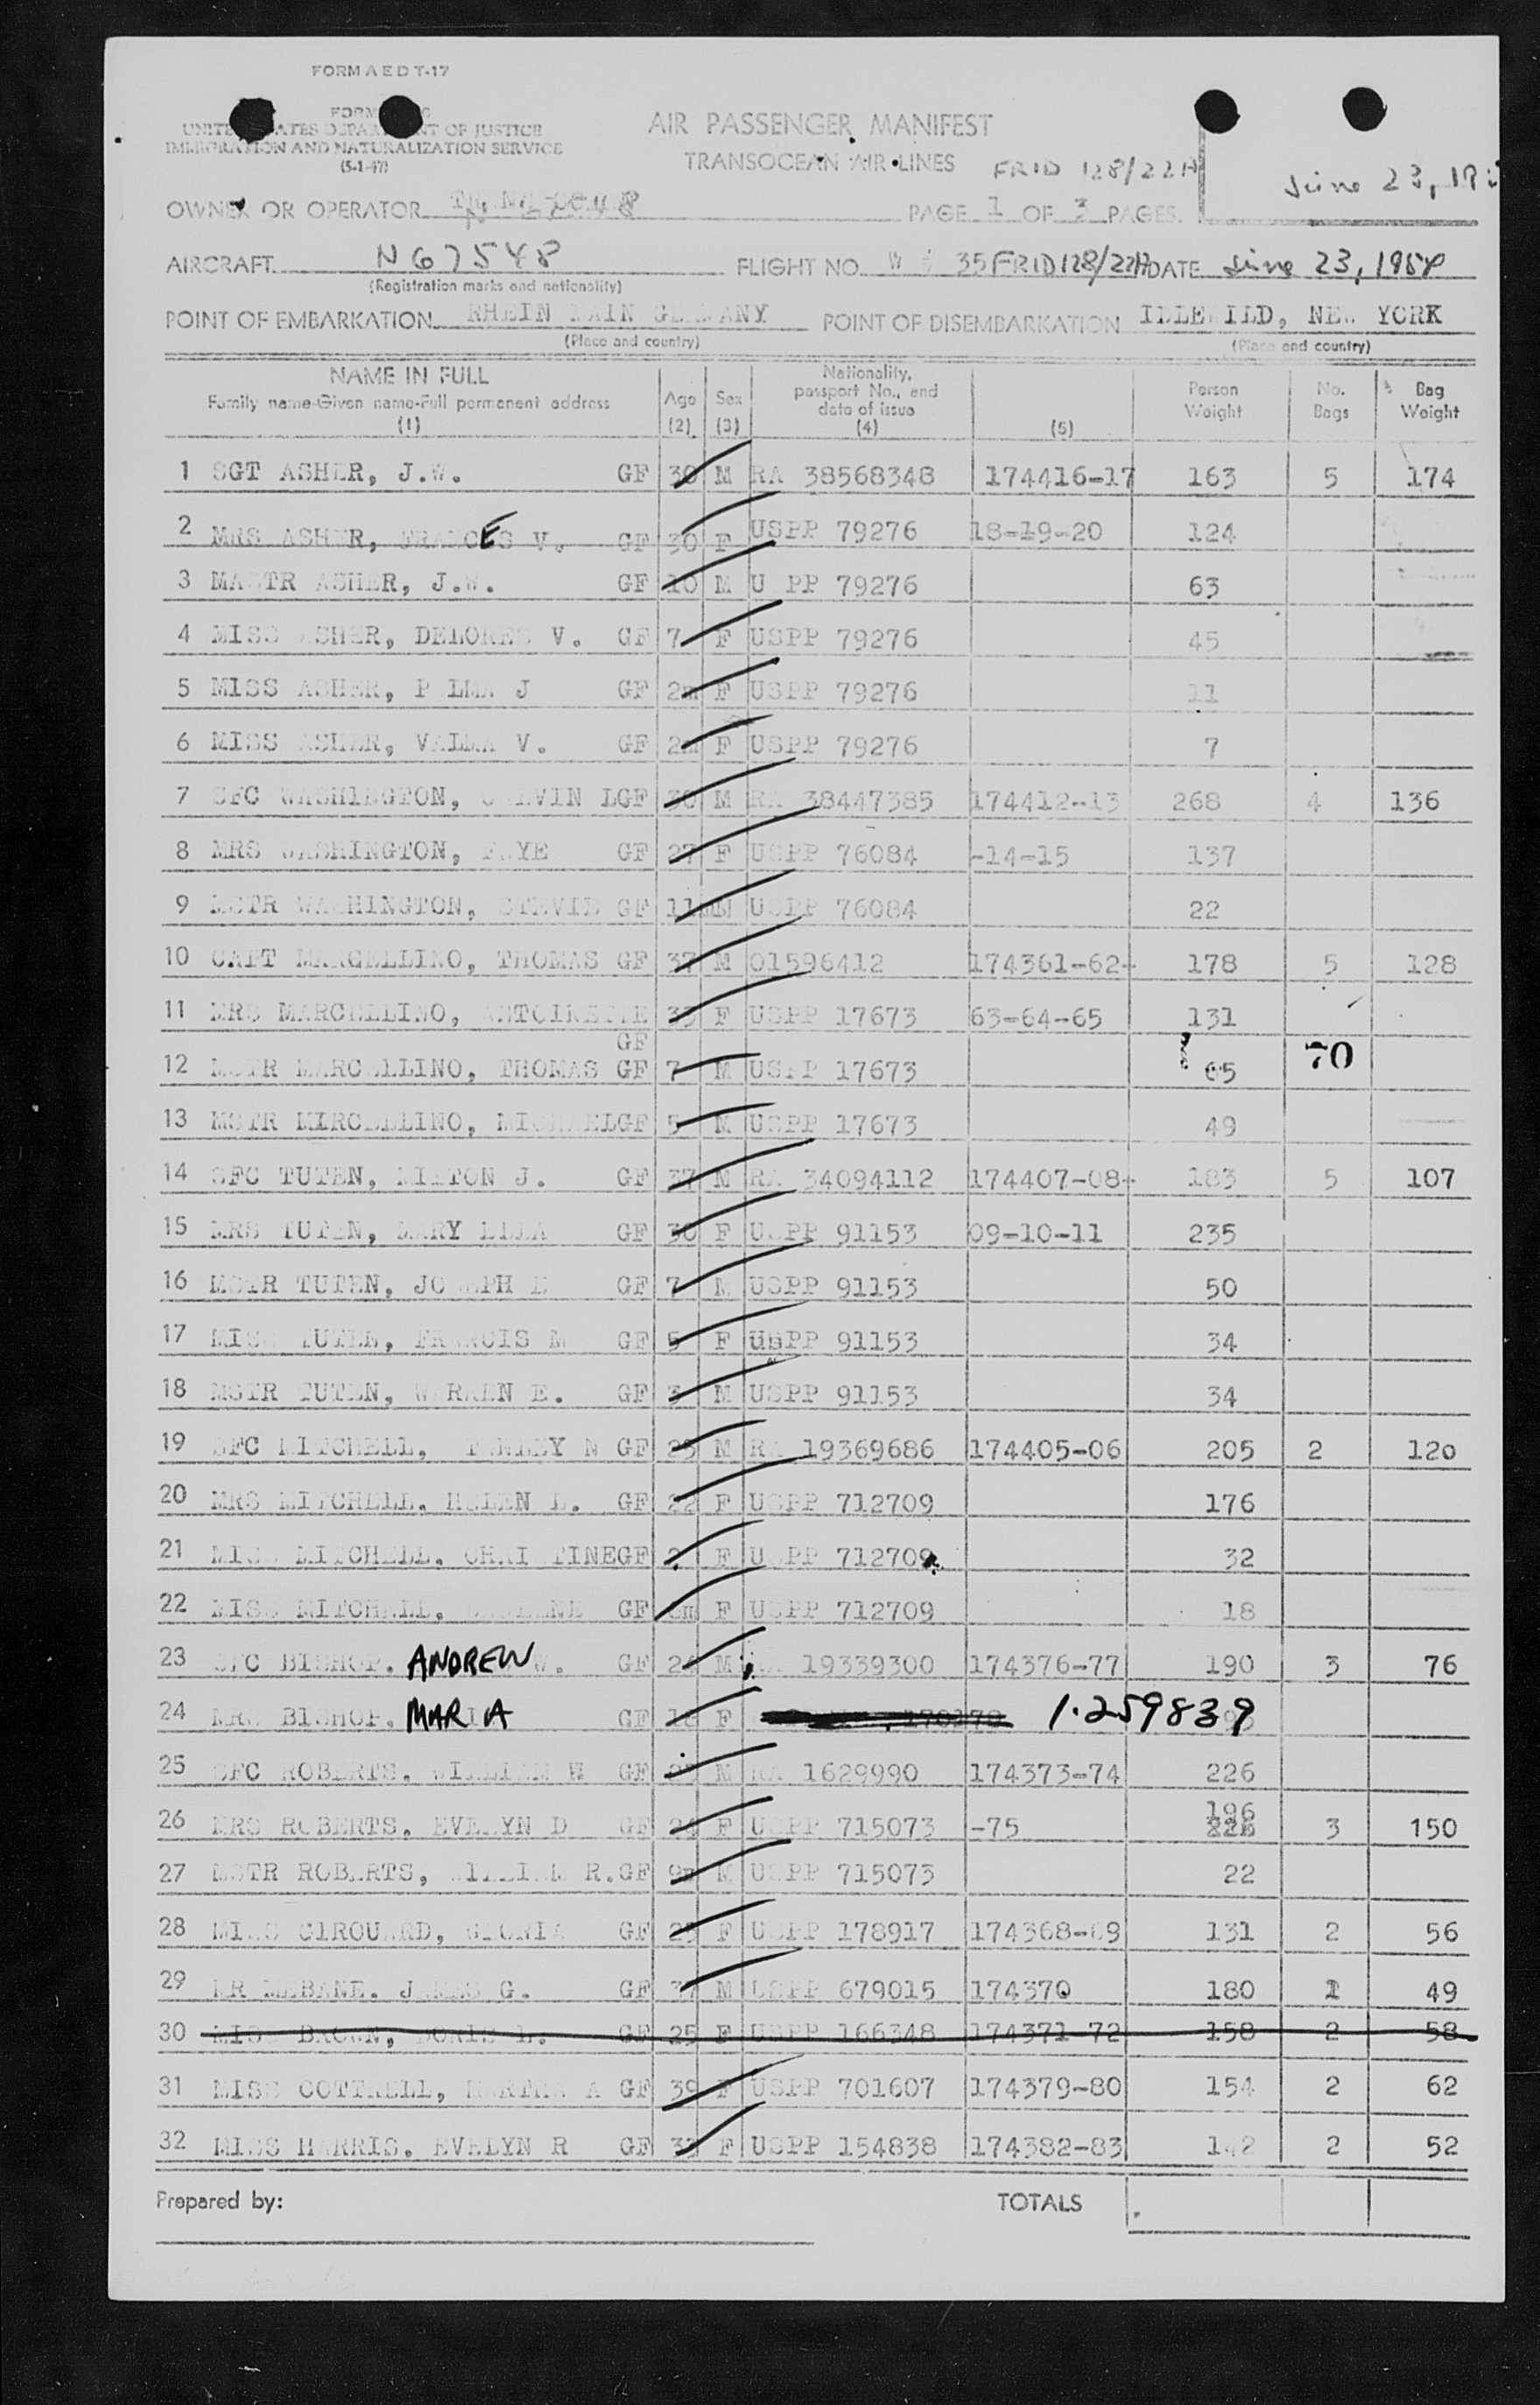 FORM A E D T-17
FORM
UNITED STATES DEPARTMENT OF JUSTICE
IMMIGRATION AND NATURALIZATION SERVICE
(5-1-47)
AIR PASSENGER MANIFEST
TRANSOCEAN AIR LINES FRID 128/22A
June 23, 195
OWNER OR OPERATOR PAGE 1 OF 3 PAGES
AIRCRAFT N67548 FLIGHT NO. W 35 FRID128/22A DATE June 23, 1954
(Registration marks and nationality)
POINT OF EMBARKATION RHEIN MAIN GERMANY POINT OF DISEMBARKATION IDLEWILD, NEW YORK
(Place and country) (Place and country)
NAME IN FULL Family name-Given name-Full permanent address (1) Age (2) Sex (3) Nationality, passport No., and date of issue (4) (5) Person Weight No. Bags Bag Weight
1 SGT ASHER, J.W. GF 30 M RA 38568348 174416-17 163 5 174
2 MRS ASHER, FRANCES V. GF 30 F USPP 79276 18-19-20 124
3 MASTR ASHER, J.W. GF 10 M U PP 79276 63
4 MISS ASHER, DELORES V. GF 7 F USPP 79276 45
5 MISS ASHER, P LMA J GF 2m F USPP 79276 11
6 MISS ASHER, VALMA V. GF 2m F USPP 79276 7
7 SFC WASHINGTON, CALVIN L GF 30 M RA 38447385 174412-13 268 4 136
8 MRS WASHINGTON, FAYE GF 27 F USPP 76084 -14-15 137
9 MSTR WASHINGTON, STEVIE GF 11m M USPP 76084 22
10 CAPT MARCELLINO, THOMAS GF 37 M 01596412 174361-62- 178 5 128
11 MRS MARCELLINO, ANTOINETTE GF 33 F USPP 17673 63-64-65 131
12 MSTR MARCELLINO, THOMAS GF 7 M USPP 17673 65 70
13 MSTR MIRCELLINO, MICHAEL GF 5 M USPP 17673 49
14 SFC TUTEN, MILTON J. GF 37 M RA 34094112 174407-08- 183 5 107
15 MRS TUTEN, MARY LILA GF 30 F USPP 91153 09-10-11 235
16 MSTR TUTEN, JOSEPH E GF 7 M USPP 91153 50
17 MISS TUTEN, FRANCIS M GF 5 F USPP 91153 34
18 MSTR TUTEN, WARREN E. GF 3 M USPP 91153 34
19 SFC MITCHELL, N GF 25 M RA 19369686 174405-06 205 2 120
20 MRS MITCHELL, HELEN L. GF 22 F USPP 712709 176
21 MISS MITCHELL, CHRISTINE GF 2 F USPP 712709 32
22 MISS MITCHELL, GF F USPP 712709 18
23 SFC BISHOP, ANDREW W. GF 24 M 19339300 174376-77 190 3 76
24 MRS BISHOP, MARIA GF 18 F 1-259839
25 SFC ROBERTS, WILLIAM W GF M RA 1629990 174373-74 226
26 MRS ROBERTS, EVELYN D GF 24 F USPP 715073 -75 196 3 150
27 MSTR ROBERTS, WILLIAM R. GF 9m M USPP 715073 22
28 MISS GIROUARD, GLORIA GF 23 F USPP 178917 174368-69 131 2 56
29 MR MEBANE, JAMES G. GF 37 M USPP 679015 174370 180 1 49
30 MISS BROWN, DORIS L. GF 25 F USPP 166348 174371-72 158 2 58
31 MISS COTTRELL, MARTHA A GF 39 F USPP 701607 174379-80 154 2 62
32 MISS HARRIS, EVELYN R GF 33 F USPP 154838 174382-83 142 2 52
Prepared by: TOTALS